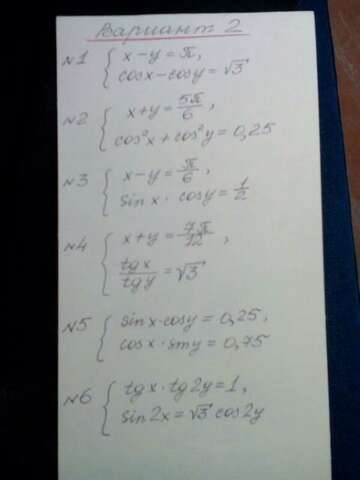 Вариант 2
№1 { x - y = π,
cosx - cosy = √3
№2 { x + y = 5π/6,
cos²x + cos²y = 0,25
№3 { x - y = π/6,
sinx · cosy = 1/2
№4 { x + y = 7π/12,
tgx/tgy = √3
№5 { sinx · cosy = 0,25,
cosx · siny = 0,75
№6 { tgx · tg2y = 1,
sin2x = √3 cos2y